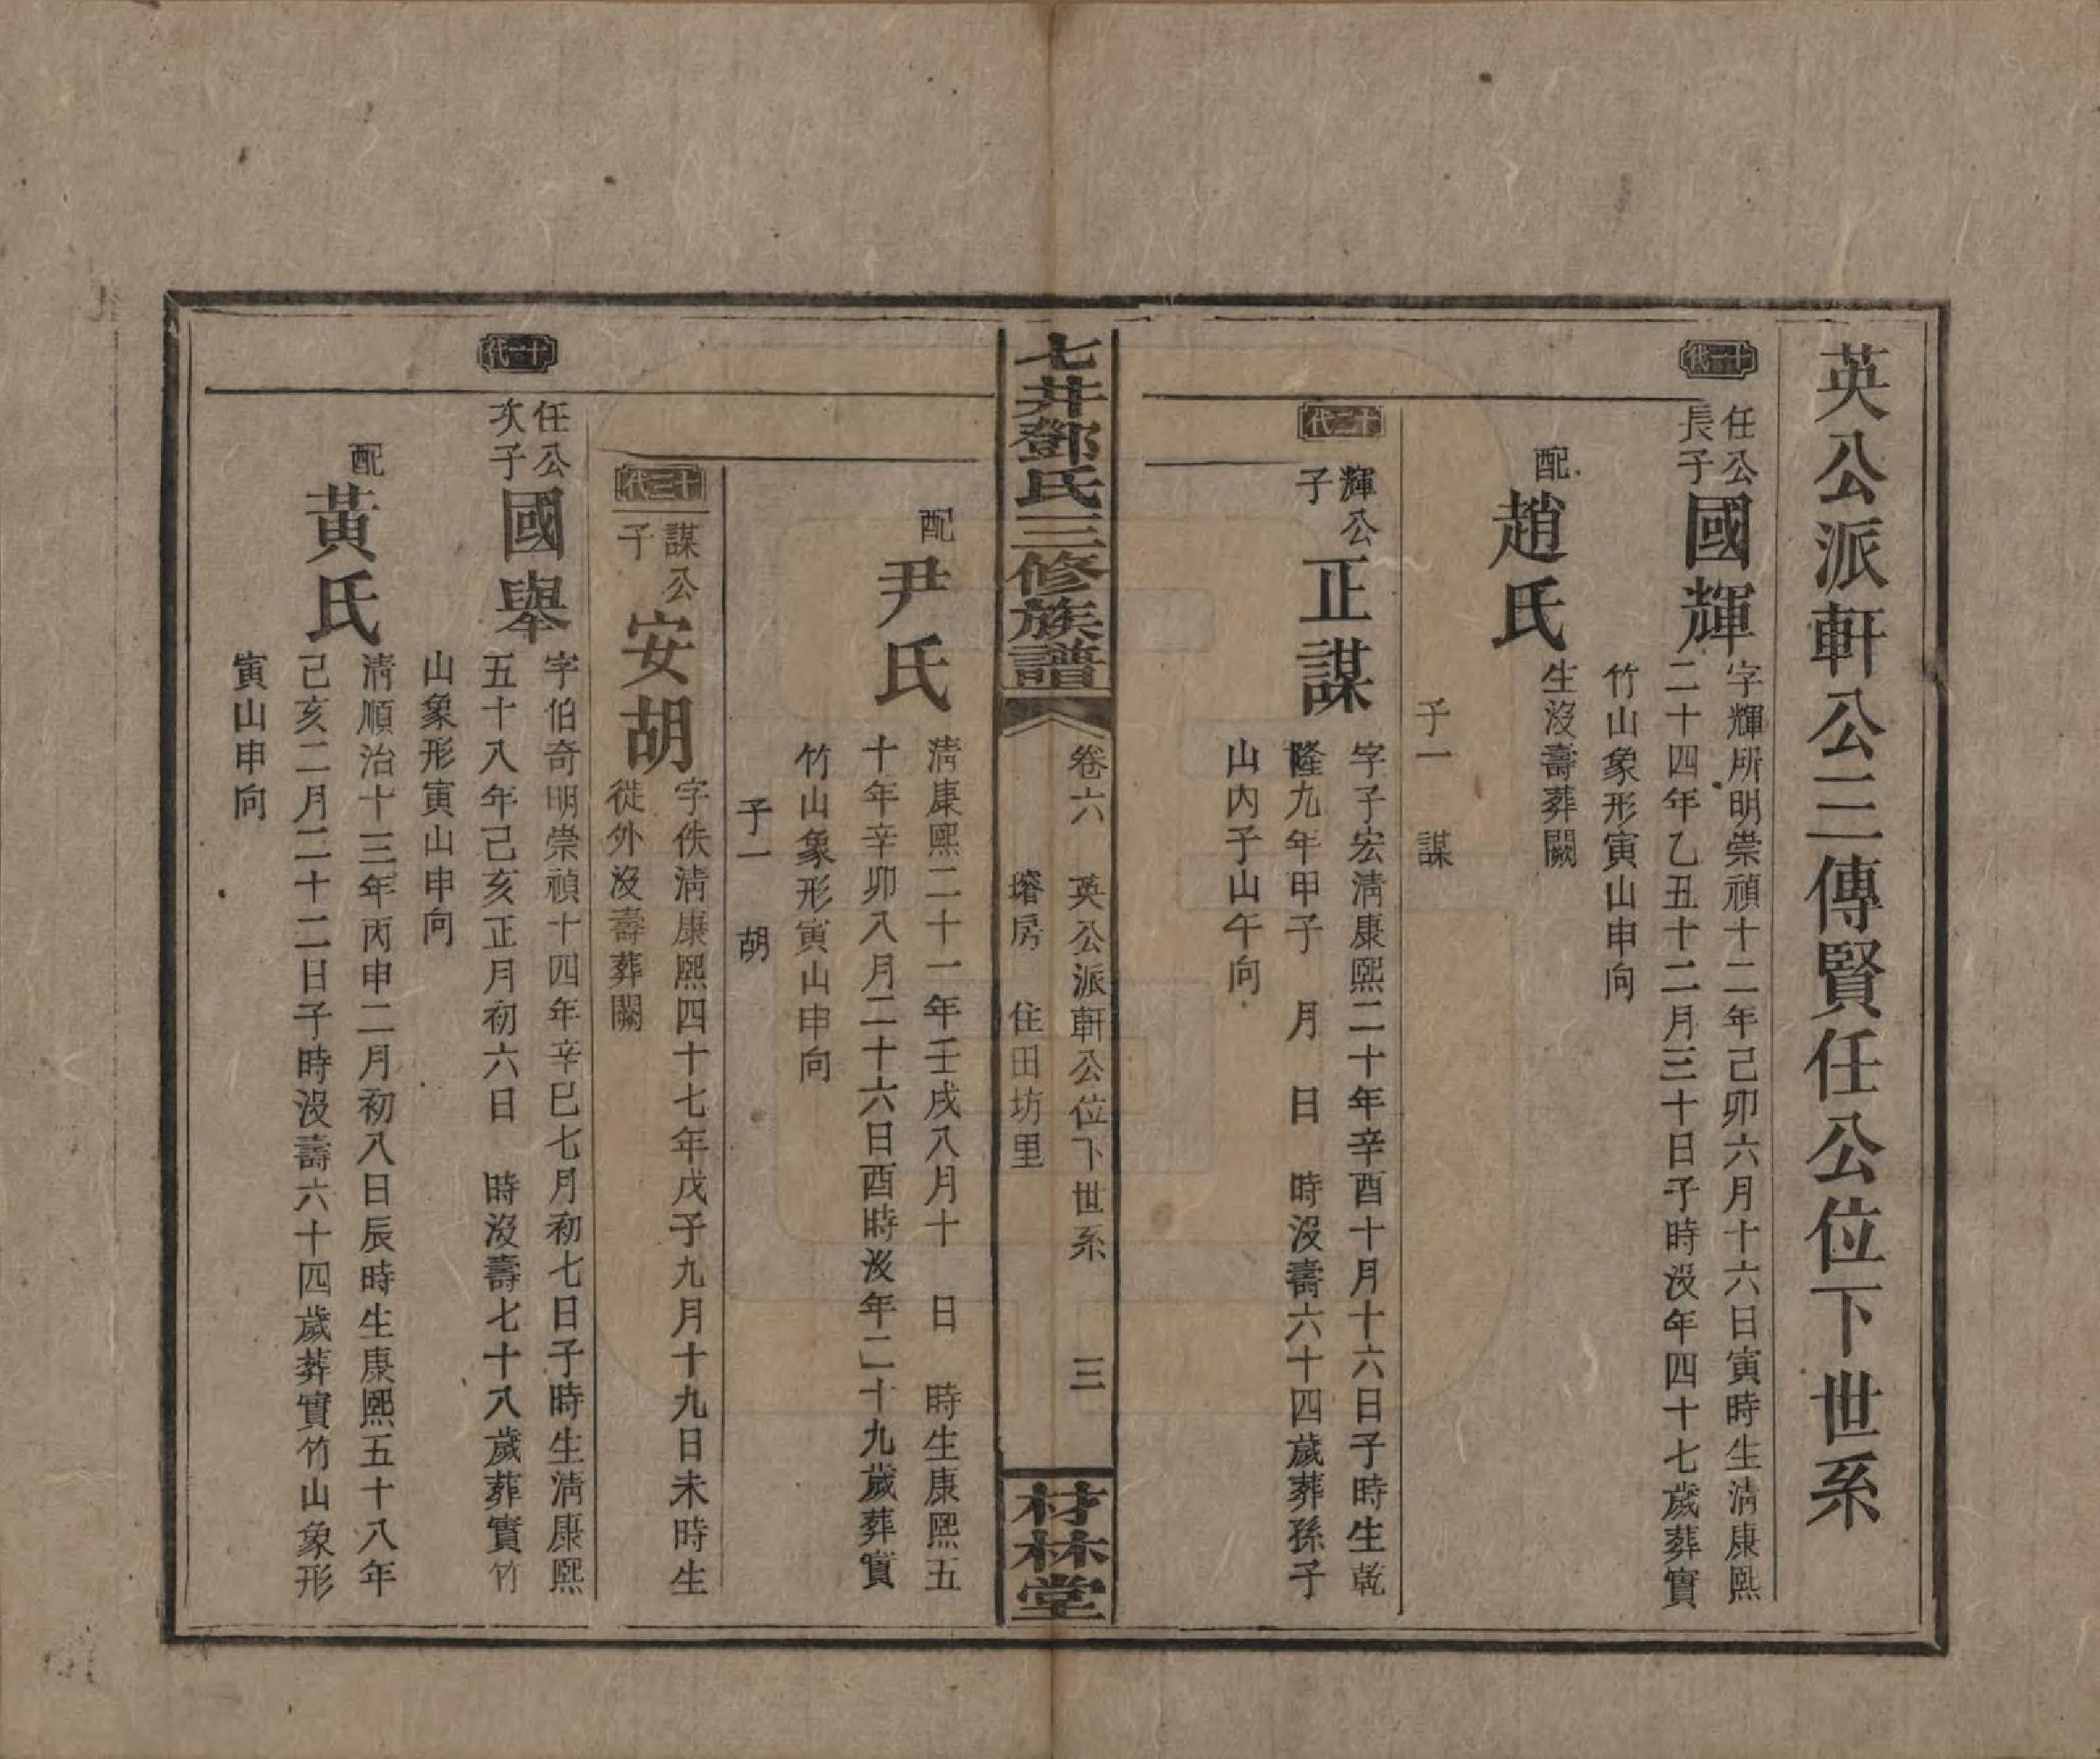 英公派軒公三傳賢任公位下世系
十一代
任公
長子
國輝
字輝所明崇禎十二年己卯六月十六日寅時生淸康熙
二十四年乙丑十二月三十日子時沒年四十七歲葬實
竹山象形寅山申向
配
趙氏
生沒壽葬闕
子一 謀
十二代
輝公
子
正謀
字子宏淸康熙二十年辛酉十月十六日子時生乾
隆九年甲子 月 日 時沒壽六十四歲葬孫子
山內子山午向
七井鄧氏三修族譜
卷六 英公派軒公位下世系 三
房 住田坊里
材林堂
配
尹氏
淸康熙二十一年壬戌八月十 日 時生康熙五
十年辛卯八月二十六日酉時沒年二十九歲葬實
竹山象形寅山申向
子一 胡
十三代
謀公
子
安胡
字佚淸康熙四十七年戊子九月十九日未時生
徙外沒壽葬闕
十一代
任公
次子
國舉
字伯奇明崇禎十四年辛巳七月初七日子時生淸康熙
五十八年己亥正月初六日 時沒壽七十八歲葬實竹
山象形寅山申向
配
黃氏
淸順治十三年丙申二月初八日辰時生康熙五十八年
己亥二月二十二日子時沒壽六十四歲葬實竹山象形
寅山申向